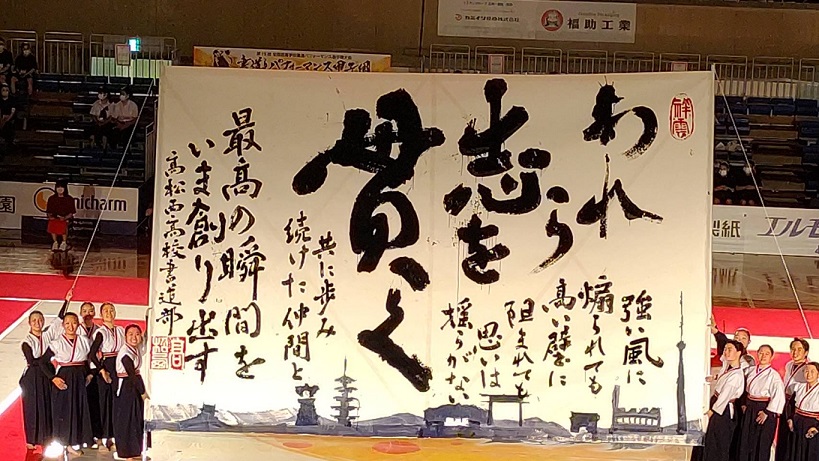 福助工業
われら
志を
貫く
強い風に
煽られても
高い壁に
阻まれても
思いは
揺らがない
共に歩み
続けた仲間と
最高の瞬間を
いま創り出す
高松西高校書道部
nicharm
製紙
エルモ